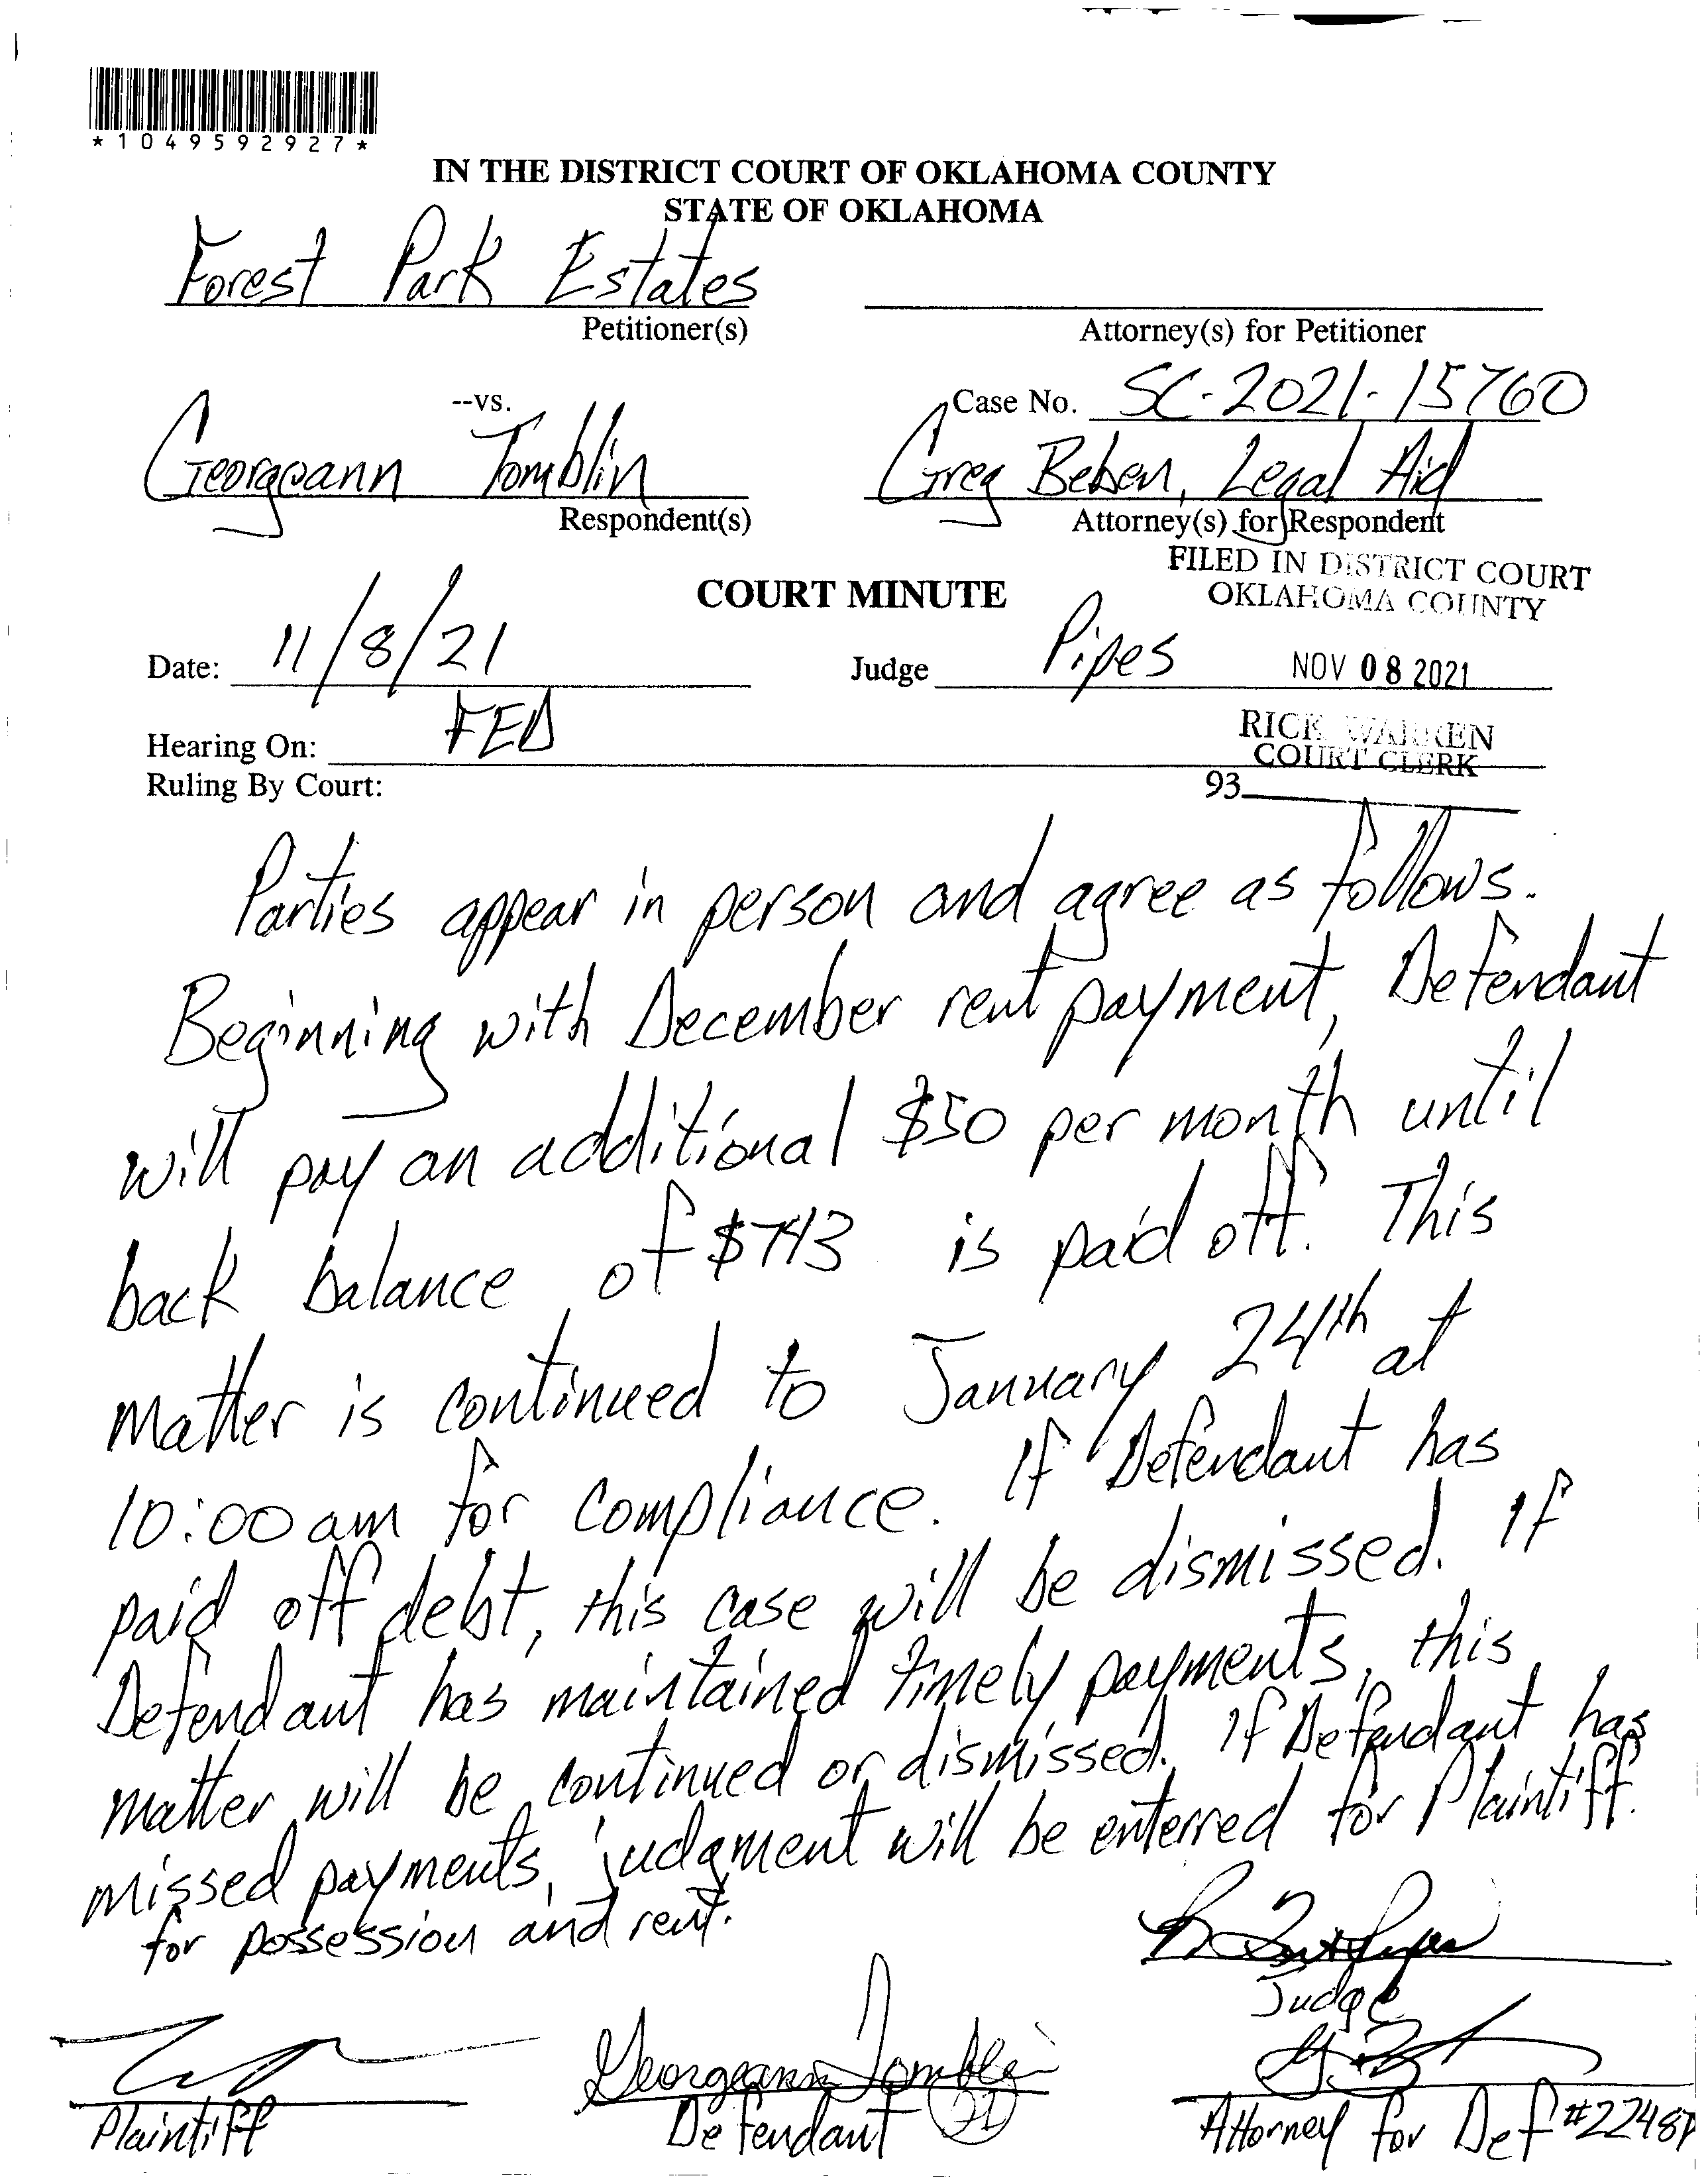 *1049592927*
IN THE DISTRICT COURT OF OKLAHOMA COUNTY
STATE OF OKLAHOMA
Forest Park Estates
Petitioner(s)
Attorney(s) for Petitioner
--vs.
Case No. SC-2021-15760
Georgeann Tomblin
Respondent(s)
Greg Beben, Legal Aid
Attorney(s) for Respondent
FILED IN DISTRICT COURT
OKLAHOMA COUNTY
COURT MINUTE
Date: 11/8/21
Judge Pipes
NOV 08 2021
Hearing On: FED
RICK WARREN
COURT CLERK
Ruling By Court:
93
Parties appear in person and agree as follows.
Beginning with December rent payment, Defendant
will pay an additional $50 per month until
back balance of $743 is paid off. This
matter is continued to January 24th at
10:00am for compliance. If Defendant has
paid off debt, this case will be dismissed. If
Defendant has maintained timely payments, this
matter will be continued or dismissed. If Defendant has
missed payments, judgment will be enterred for Plaintiff.
for possession and rent.
Judge
Georgeann Tomblin
Plaintiff
Defendant
21
Attorney for Def #22487